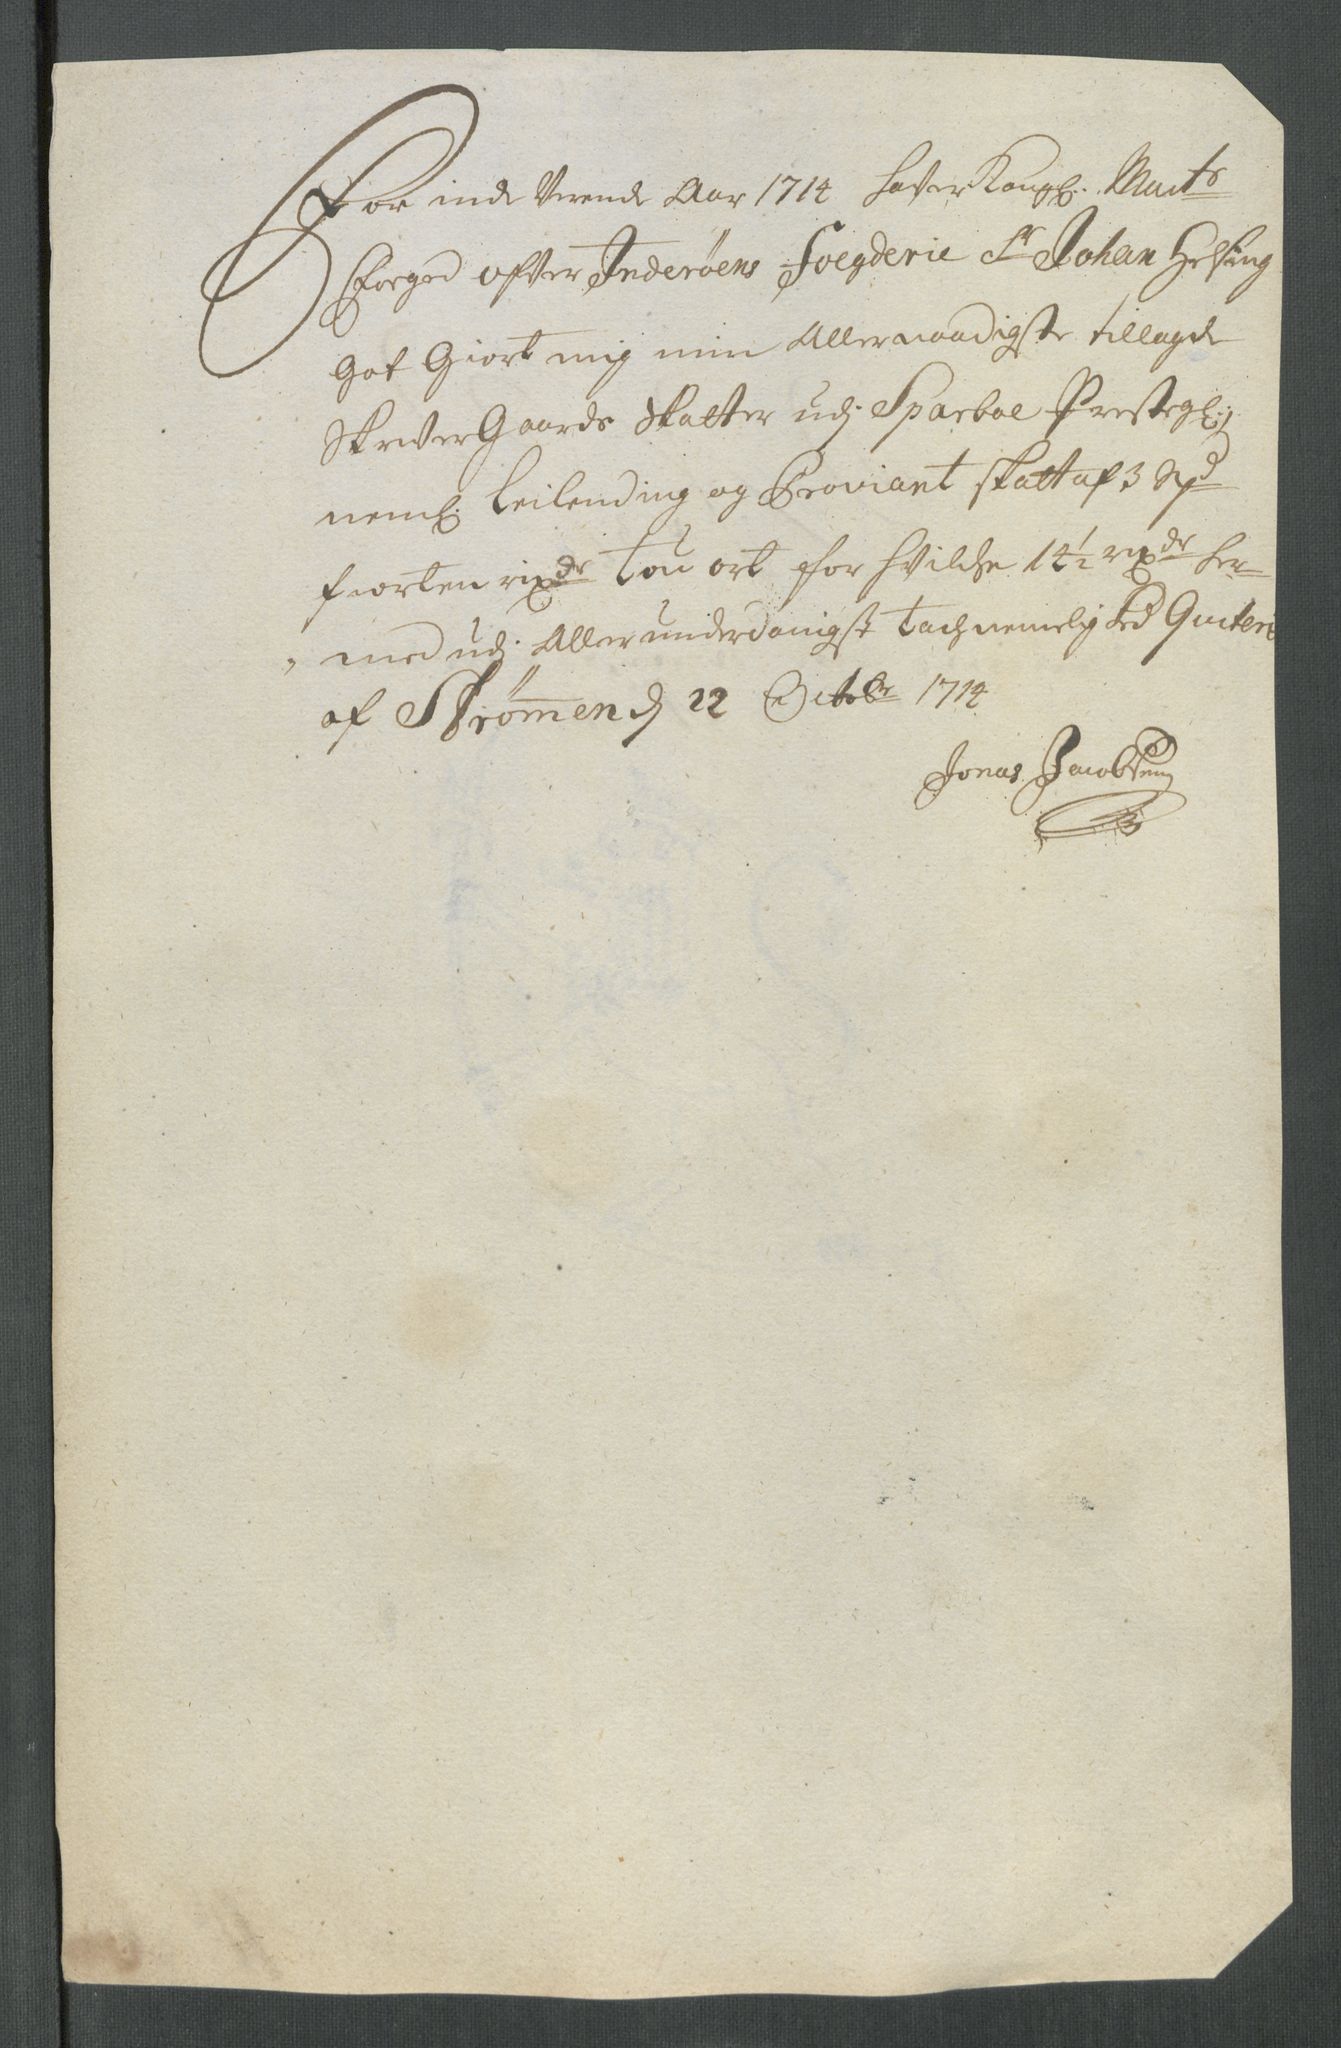 For inde Verende Aar 1714 haver Kongl. Maits
Foeged ofver Inderöens Foegderie Sr Johan Helsing
Got Giort mig min Allernaadigste tillagde
SkriverGaards Skatter udj Sparboe Prestegl:
neml. Leilending og Proviant skatt af 3 Spd
fiorten rixdr tou ort for hvilche 14½ rixdr her-
med udj Allerunderdanigst tachnemelighed Qviteris
af Strömen d 22 Octobr 1714
Jonas Jacobsen